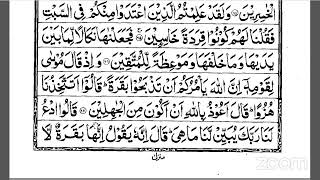 الْخٰسِرِيْنَ۝ وَلَقَدْ عَلِمْتُمُ الَّذِيْنَ اعْتَدَوْا مِنْكُمْ فِى السَّبْتِ
فَقُلْنَا لَهُمْ كُوْنُوْا قِرَدَةً خَاسِـِٔيْنَ۝ فَجَعَلْنٰهَا نَكَالًا لِّمَا بَيْنَ
يَدَيْهَا وَمَا خَلْفَهَا وَمَوْعِظَةً لِّلْمُتَّقِيْنَ۝ وَاِذْ قَالَ مُوْسٰى
لِقَوْمِهٖۤ اِنَّ اللّٰهَ يَاْمُرُكُمْ اَنْ تَذْبَحُوْا بَقَرَةً ؕ قَالُوْۤا اَتَتَّخِذُنَا
هُزُوًا ؕ قَالَ اَعُوْذُ بِاللّٰهِ اَنْ اَكُوْنَ مِنَ الْجٰهِلِيْنَ۝ قَالُوا ادْعُ
لَنَا رَبَّكَ يُبَيِّنْ لَّنَا مَا هِىَ ؕ قَالَ اِنَّهٗ يَقُوْلُ اِنَّهَا بَقَرَةٌ لَّا
منزل
zoom